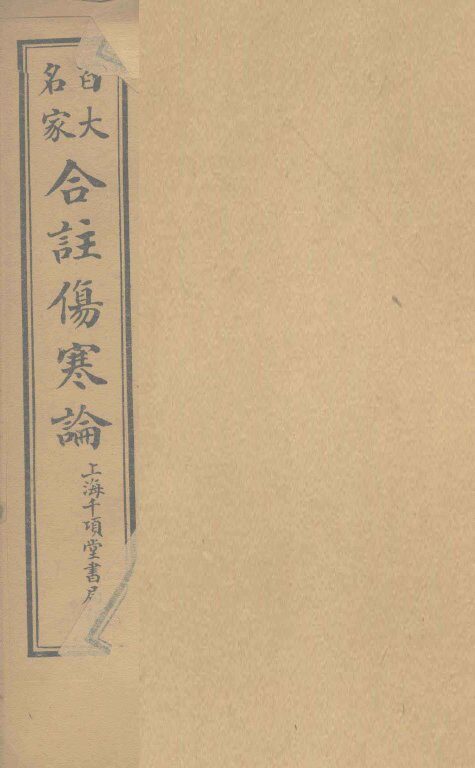 百大
名家
合註傷寒論
上海千頃堂書局